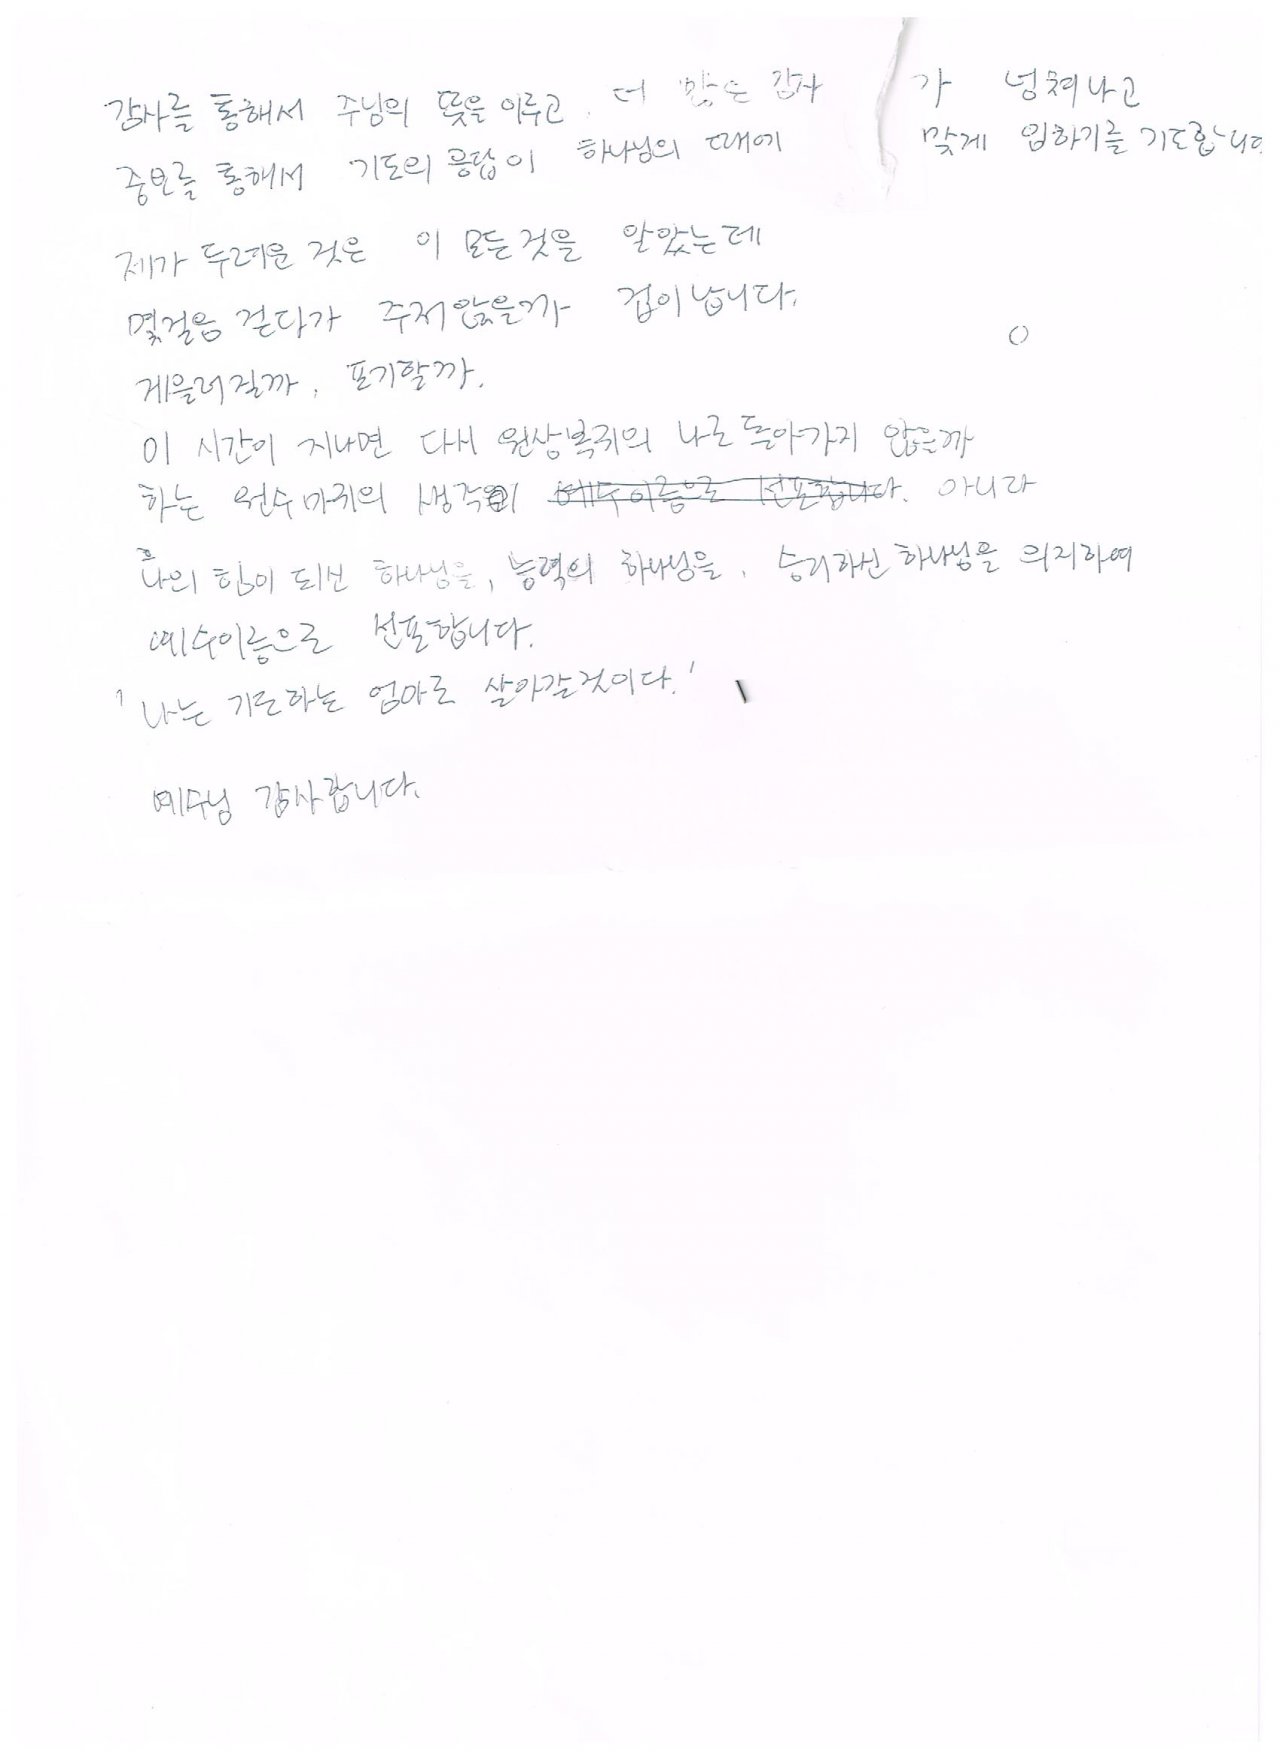 감사를 통해서 주님의 뜻을 이루고, 더 많은 감사 가 넘쳐나고
중보를 통해서 기도의 응답이 하나님의 때에 맞게 임하기를 기도합니다
제가 두려운 것은 이 모든것을 알았는데
몇걸음 걷다가 주저앉을까 겁이납니다.
게을러질까, 포기할까.
이 시간이 지나면 다시 원상복귀의 나로 돌아가지 않을까
하는 원수마귀의 생각이 예수이름으로 선포합니다. 아니라
나의 힘이 되신 하나님을, 능력의 하나님을, 승리하신 하나님을 의지하여
예수이름으로 선포합니다.
'나는 기도하는 엄마로 살아갈것이다.'
예수님 감사합니다.